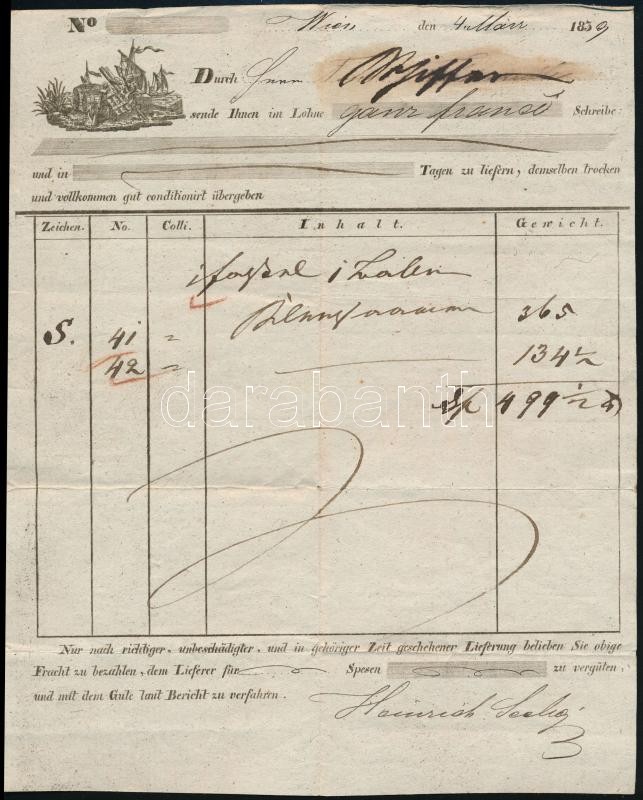 No
Wien den 4 März 1859
Durch Herrn Schiffer
sende Ihnen im Lohne ganz franco Schreibe:
und in Tagen zu liefern, demselben trocken
und vollkommen gut conditionirt übergeben
Zeichen. No. Colli. Inhalt. Gewicht.
1 1
S. 41 " 365
42 " 134 1/2
499 1/2
darabanth
Nur nach richtiger, unbeschädigter, und in gehöriger Zeit geschehener Lieferung belieben Sie obige
Fracht zu bezahlen, dem Lieferer für Spesen zu vergüten,
und mit dem Gute laut Bericht zu verfahren.
Heinrich